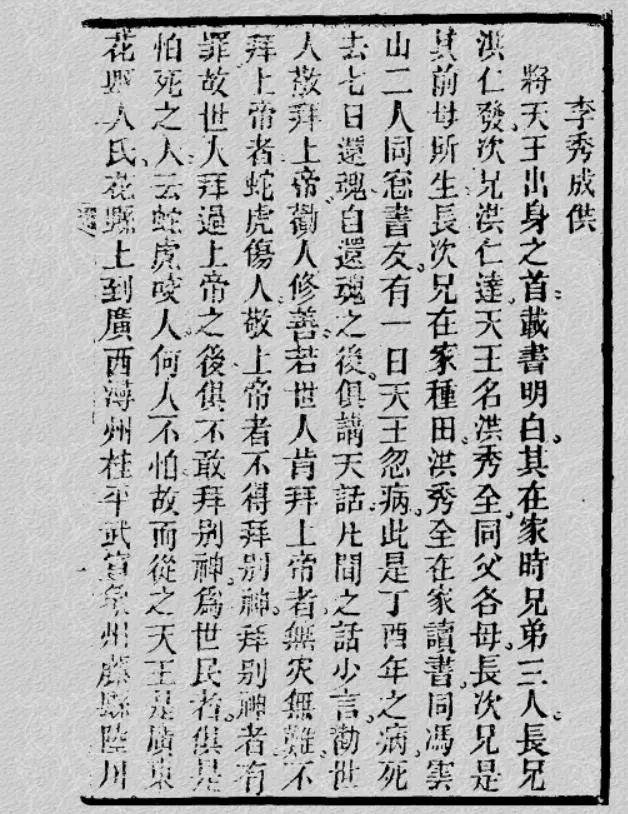 李秀成供
將天王出身之首載書明白。其在家時兄弟三人。長兄
洪仁發。次兄洪仁達。天王名洪秀全。同父各母。長次兄是
其前母所生。長次兄在家種田。洪秀全在家讀書。同馮雲
山二人同窓書友。有一日天王忽病。此是丁酉年之病。死
去七日還魂。自還魂之後。俱講天話。凡間之話少言。勸世
人敬拜上帝。勸人修善。若世人肯拜上帝者。無灾無難。不
拜上帝者。蛇虎傷人。敬上帝者不得拜別神。拜別神者有
罪。故世人拜過上帝之後。俱不敢拜別神。爲世民者。俱是
怕死之人。云蛇虎咬人。何人不怕。故而從之。天王是廣東
花縣人氏。花縣上到廣西潯州桂平武宣象州藤縣陸川